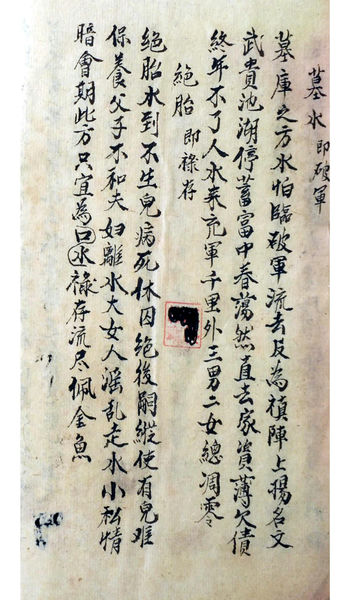 墓水 即破軍
墓庫之方水怕臨破軍流去反為禎陣上揚名文
武貴池湖停蓄富中春蕩然直去家資薄欠債
終年不了人水来充軍千里外三男二女總凋零
絕胎 即祿存
絕胎水到不生兒病死休囚絕後嗣縱使有兒难
保養父子不和夫婦離水大女人滛乱走水小私情
暗會期此方只宜為口水祿存流尽佩金魚